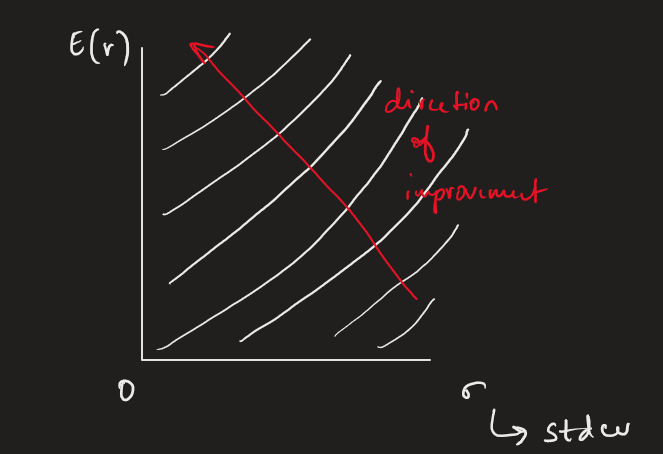 E(r)
direction
of
improvement
0
σ
↳ stdev